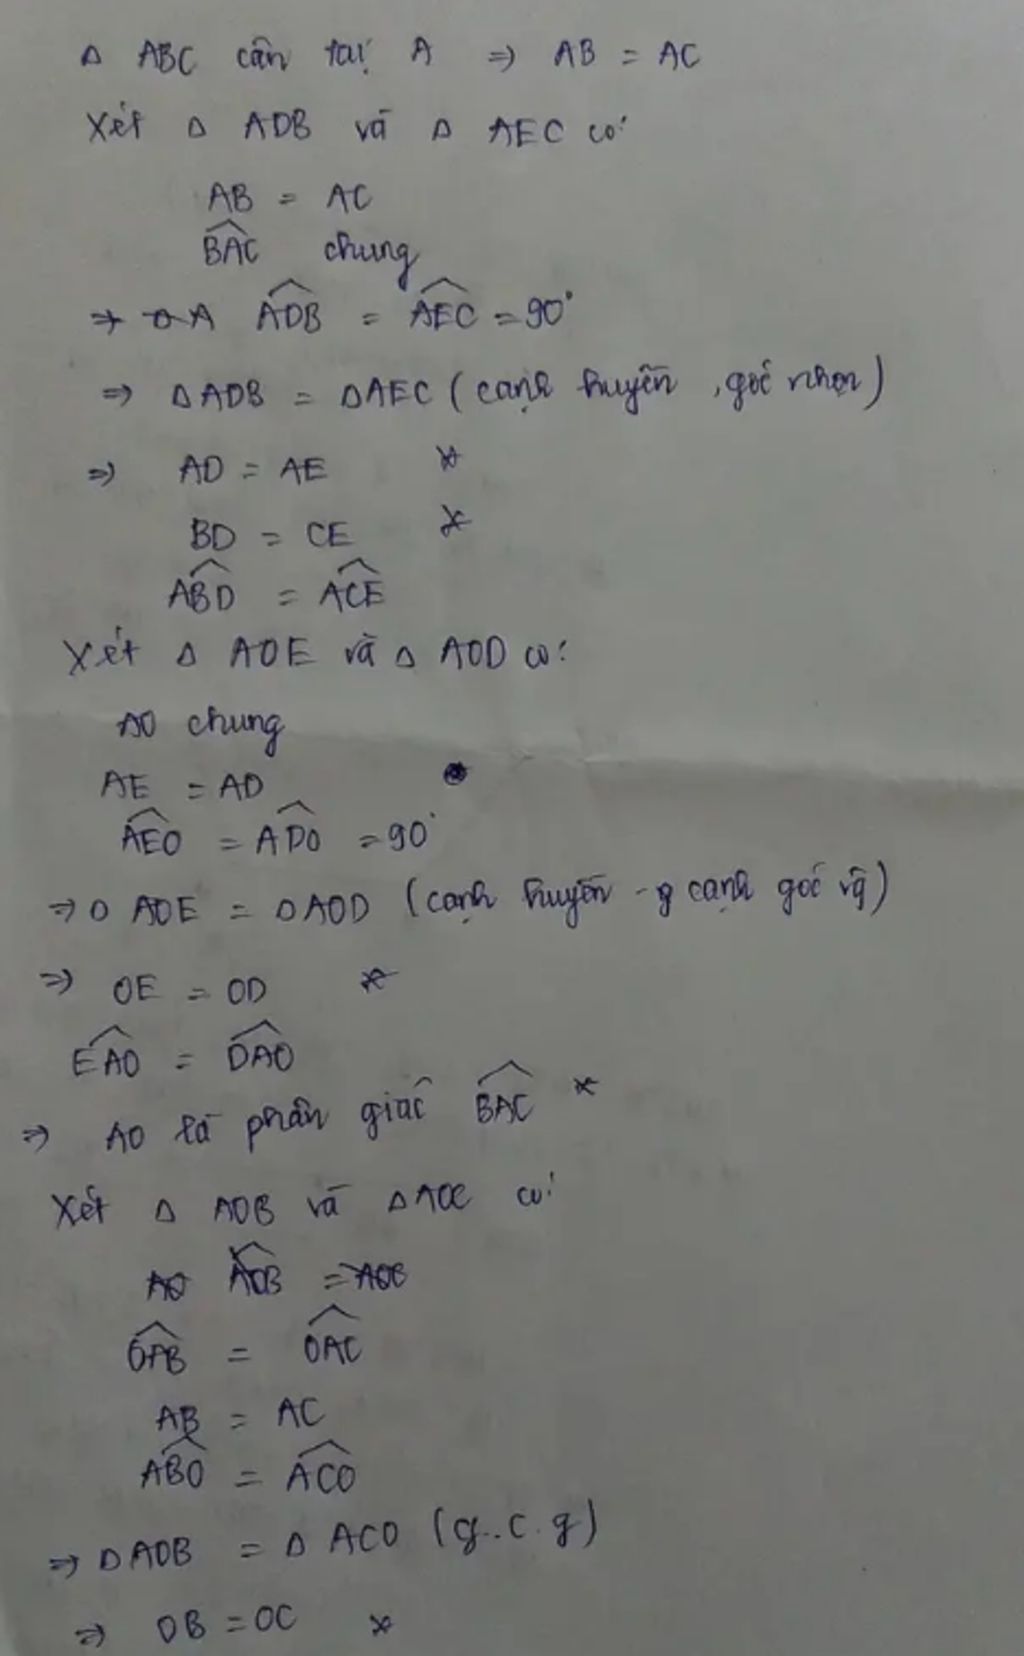 Δ ABC cân tại A ⇒ AB = AC
Xét Δ ADB và Δ AEC có:
AB = AC
\widehat{BAC} chung
⇒ \widehat{ADB} = \widehat{AEC} = 90°
⇒ ΔADB = ΔAEC (cạnh huyền, góc nhọn)
⇒ AD = AE *
BD = CE *
\widehat{ABD} = \widehat{ACE}
Xét Δ AOE và Δ AOD có:
AO chung
AE = AD
\widehat{AEO} = \widehat{ADO} = 90°
⇒ Δ AOE = ΔAOD (cạnh huyền - cạnh góc vg)
⇒ OE = OD *
\widehat{EAO} = \widehat{DAO}
⇒ AO là phân giác \widehat{BAC} *
Xét Δ AOB và ΔAOC có:
\widehat{OAB} = \widehat{OAC}
AB = AC
\widehat{ABO} = \widehat{ACO}
⇒ ΔAOB = Δ ACO (g.c.g)
⇒ OB = OC *